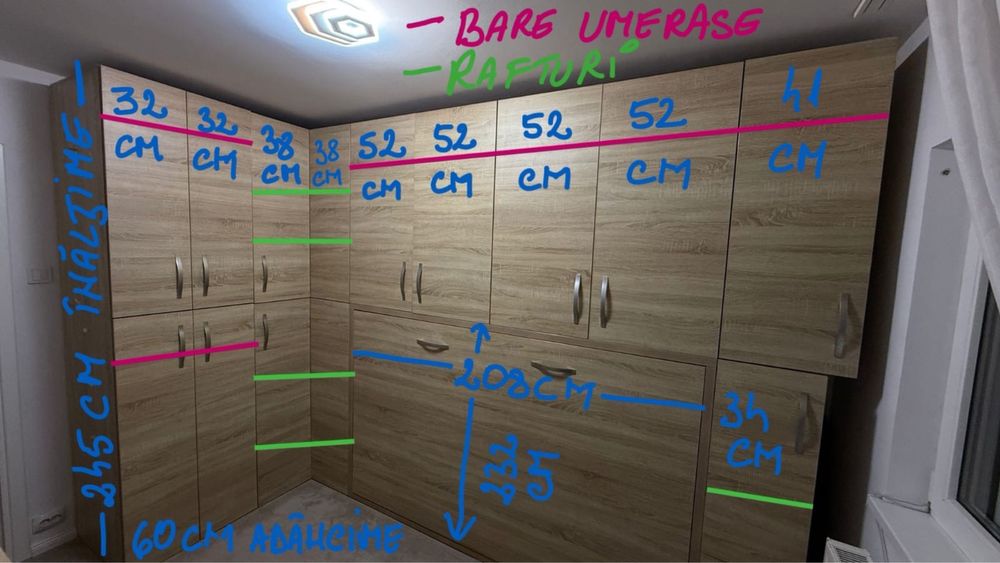 — BARE UMERAȘE
— RAFTURI
32 CM
32 CM
38 CM
38 CM
52 CM
52 CM
52 CM
52 CM
41 CM
245 CM ÎNĂLȚIME
208 CM
232 CM
34 CM
60 CM ADÂNCIME